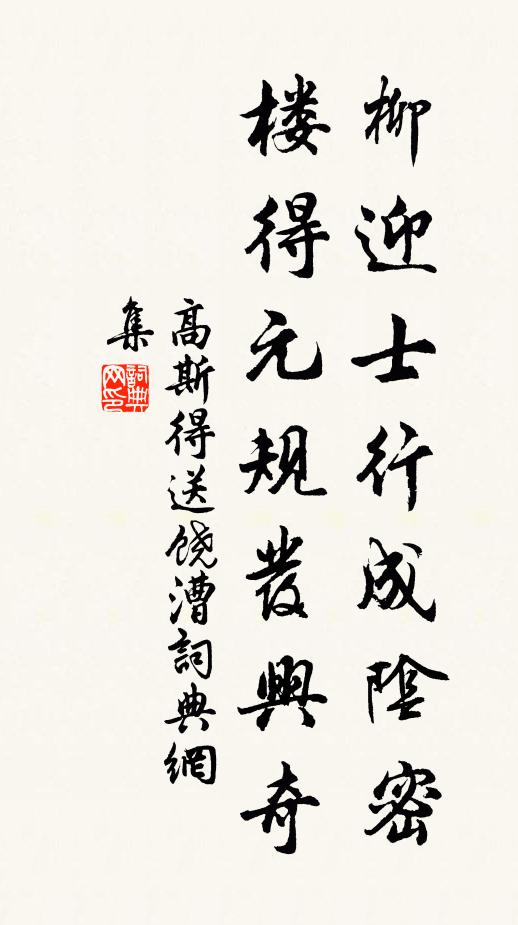 柳迎士行成陰密
楼得元规發興奇
高斯得送饶漕詞典網
集
詞典
网印